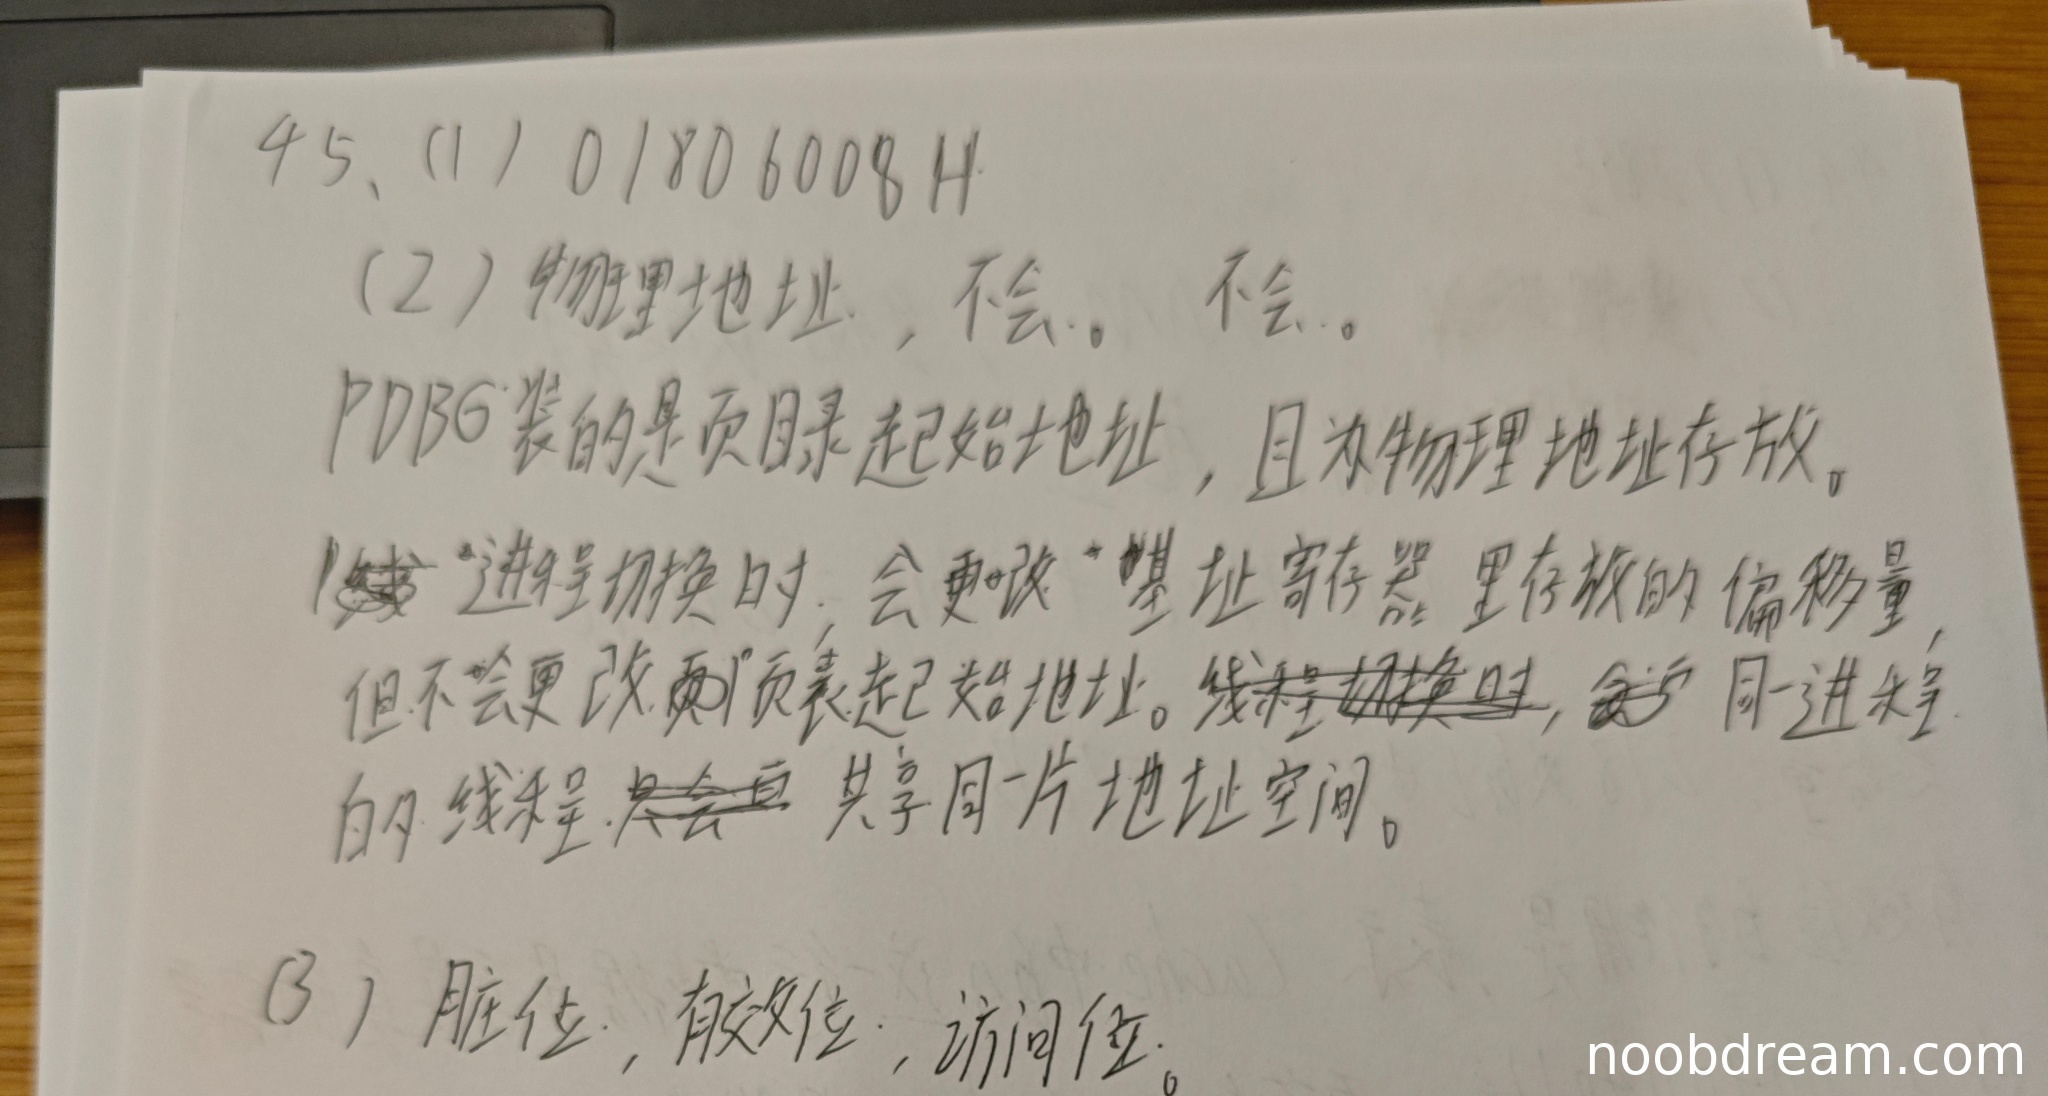 45、(1) 01806008H
(2) 物理地址，不会。 不会。
PDBG装的是页目录起始地址，且为物理地址存放。
进程切换时，会更改基址寄存器里存放的偏移量，
但不会更改页表起始地址。线程切换时，同一进程
的线程只会共享同一片地址空间。
(3) 脏位，有效位，访问位。
noobdream.com